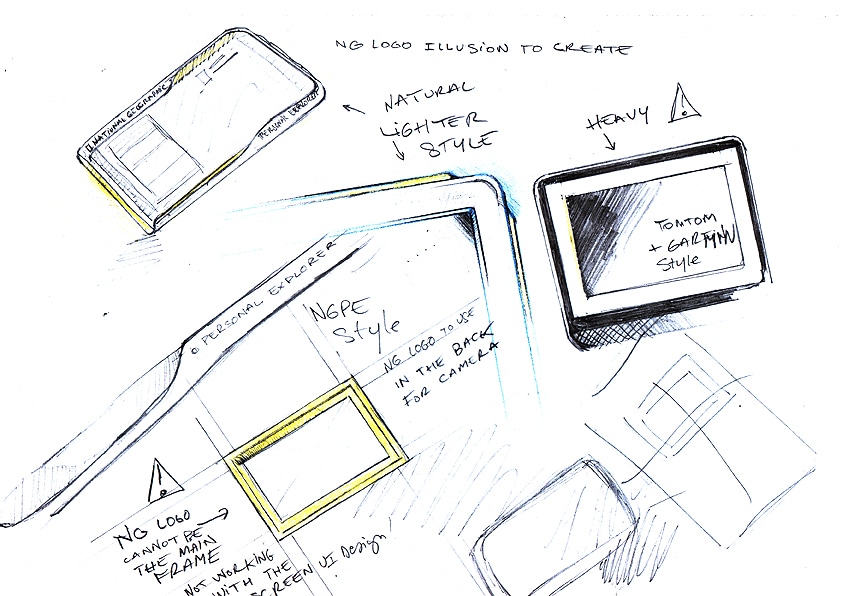 NG LOGO ILLUSION TO CREATE
NATURAL
LIGHTER
STYLE
HEAVY
NATIONAL GEOGRAPHIC
PERSONAL EXPLORER
TOMTOM
+ GARMIN
Style
PERSONAL EXPLORER
NGPE
Style
NG LOGO TO USE
IN THE BACK
FOR CAMERA
NG LOGO
CANNOT BE
THE MAIN
FRAME
NOT WORKING
WITH THE
SCREEN UI Design!